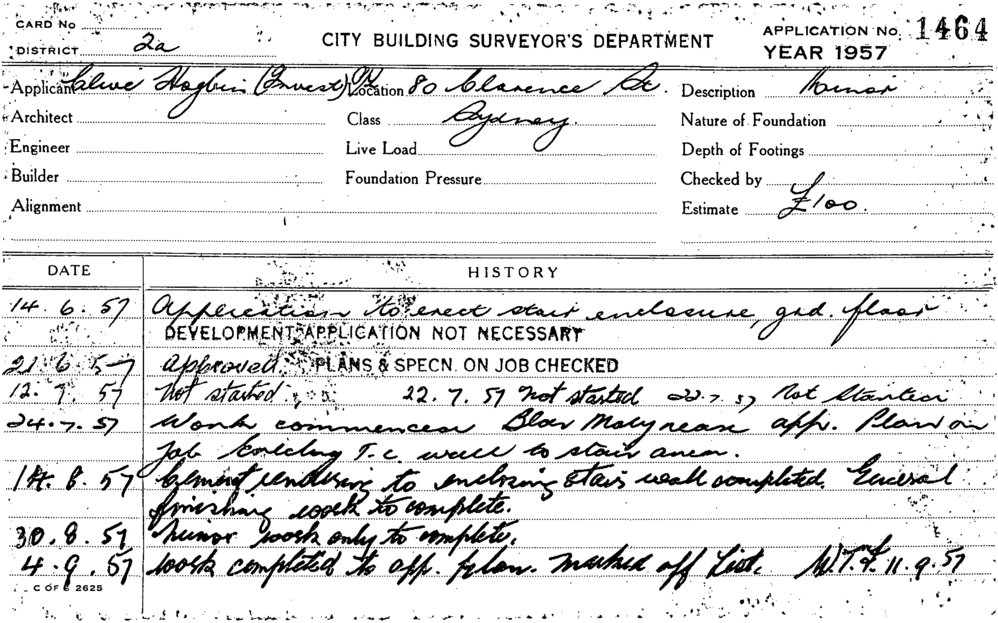 CARD No
DISTRICT 2a
CITY BUILDING SURVEYOR'S DEPARTMENT
APPLICATION No. 1464
YEAR 1957
Applicant Clive Hogbin (Invest) Pty
Location 80 Clarence St.
Description Minor
Architect
Class Sydney.
Nature of Foundation
Engineer
Live Load
Depth of Footings
Builder
Foundation Pressure
Checked by
Alignment
Estimate £100.
DATE HISTORY
14.6.57 Application to erect stair enclosure, grd. floor
DEVELOPMENT APPLICATION NOT NECESSARY
21.6.57 Approved. PLANS & SPECN. ON JOB CHECKED
12.7.57 Not started. 22.7.57 Not started 22.7.57 Not Started
24.7.57 Work commenced app. Plan on
Job T.C wall to stair area.
14.8.57 Cement rendering to enclosing stairs wall completed. General
finishing work to complete.
30.8.57 Minor work only to complete.
4.9.57 work completed to app. plan. marked off List. 11.9.57
C OF S 2625